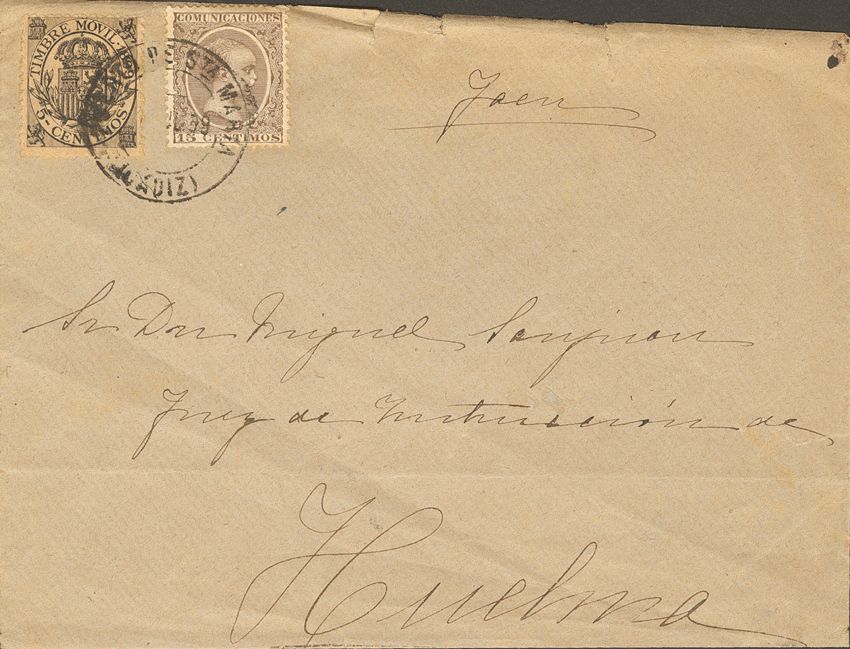 TIMBRE MÓVIL
5-CENTIMOS
COMUNICACIONES
15 CENTIMOS
Sta MARIA
(CADIZ)
Jaen
Sr Dn Miguel
Juez de Instrucción de
Huelma